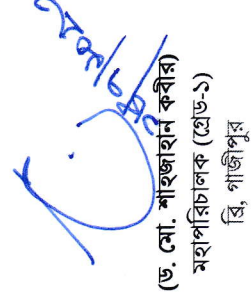 (ড. মো. শাহজাহান কবীর)
মহাপরিচালক (গ্রেড-১)
ব্রি, গাজীপুর